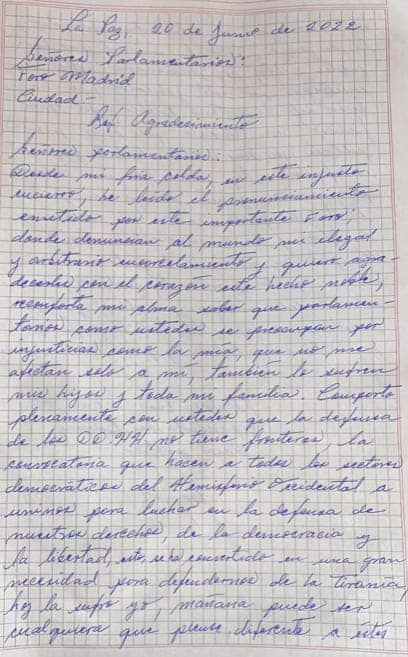 La Paz, 20 de Junio de 2022
Señores Parlamentarios:
Foro Madrid
Ciudad.-
Ref. Agradecimiento
Señores parlamentarios:
Desde mi fria celda, en este injusto
encierro, he leido el pronunciamiento
emitido por este importante Foro;
donde denuncian al mundo mi ilegal
y arbitrario encarcelamiento y quiero agra-
decerles con el corazón este hecho noble,
reconforta mi alma saber que parlamen-
tarios como ustedes se preocupan por
injusticias como la mía, que no me
afectan solo a mi, tambien lo sufren
mis hijos y toda mi familia. Comparto
plenamente con ustedes que la defensa
de los DD.HH. no tiene fronteras, la
convocatoria que hacen a todos los sectores
democráticos del Hemisferio Occidental a
unirnos para luchar en la defensa de
nuestros derechos, de la democracia y
la libertad, esto se ha convertido en una gran
necesidad para defendernos de la tirania,
hoy la sufro yo, mañana puede ser
cualquiera que piense diferente a estos